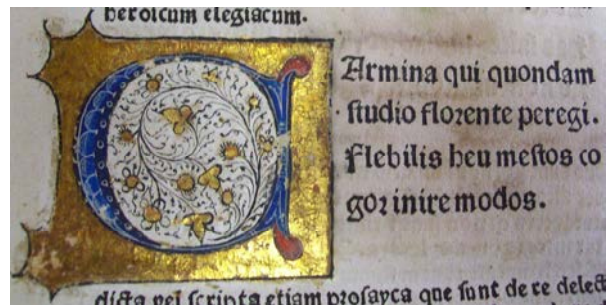 heroicum elegiacum.
CArmina qui quondam
studio florente peregi.
Flebilis heu mestos co
gor inire modos.
dicta vel scripta etiam prosayca que sunt de re delect